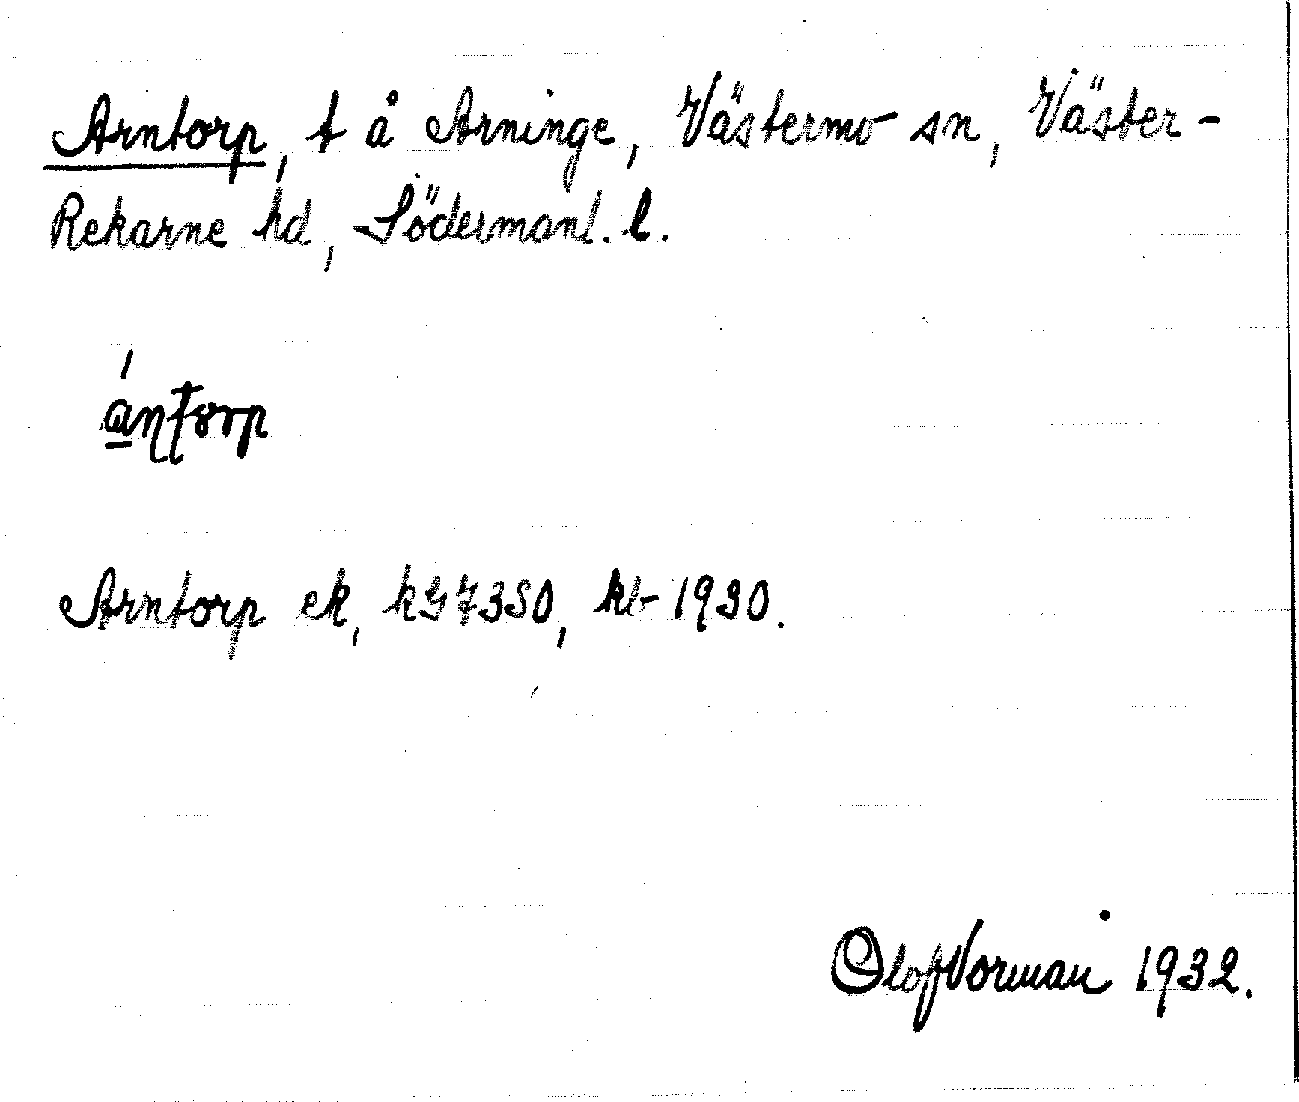 Arntorp, t å Arninge, Västermo sn, Väster-
Rekarne hd, Södermanl. l.
Arntorp ek, kG7350, kb 1930.
Olof Norman 1932.